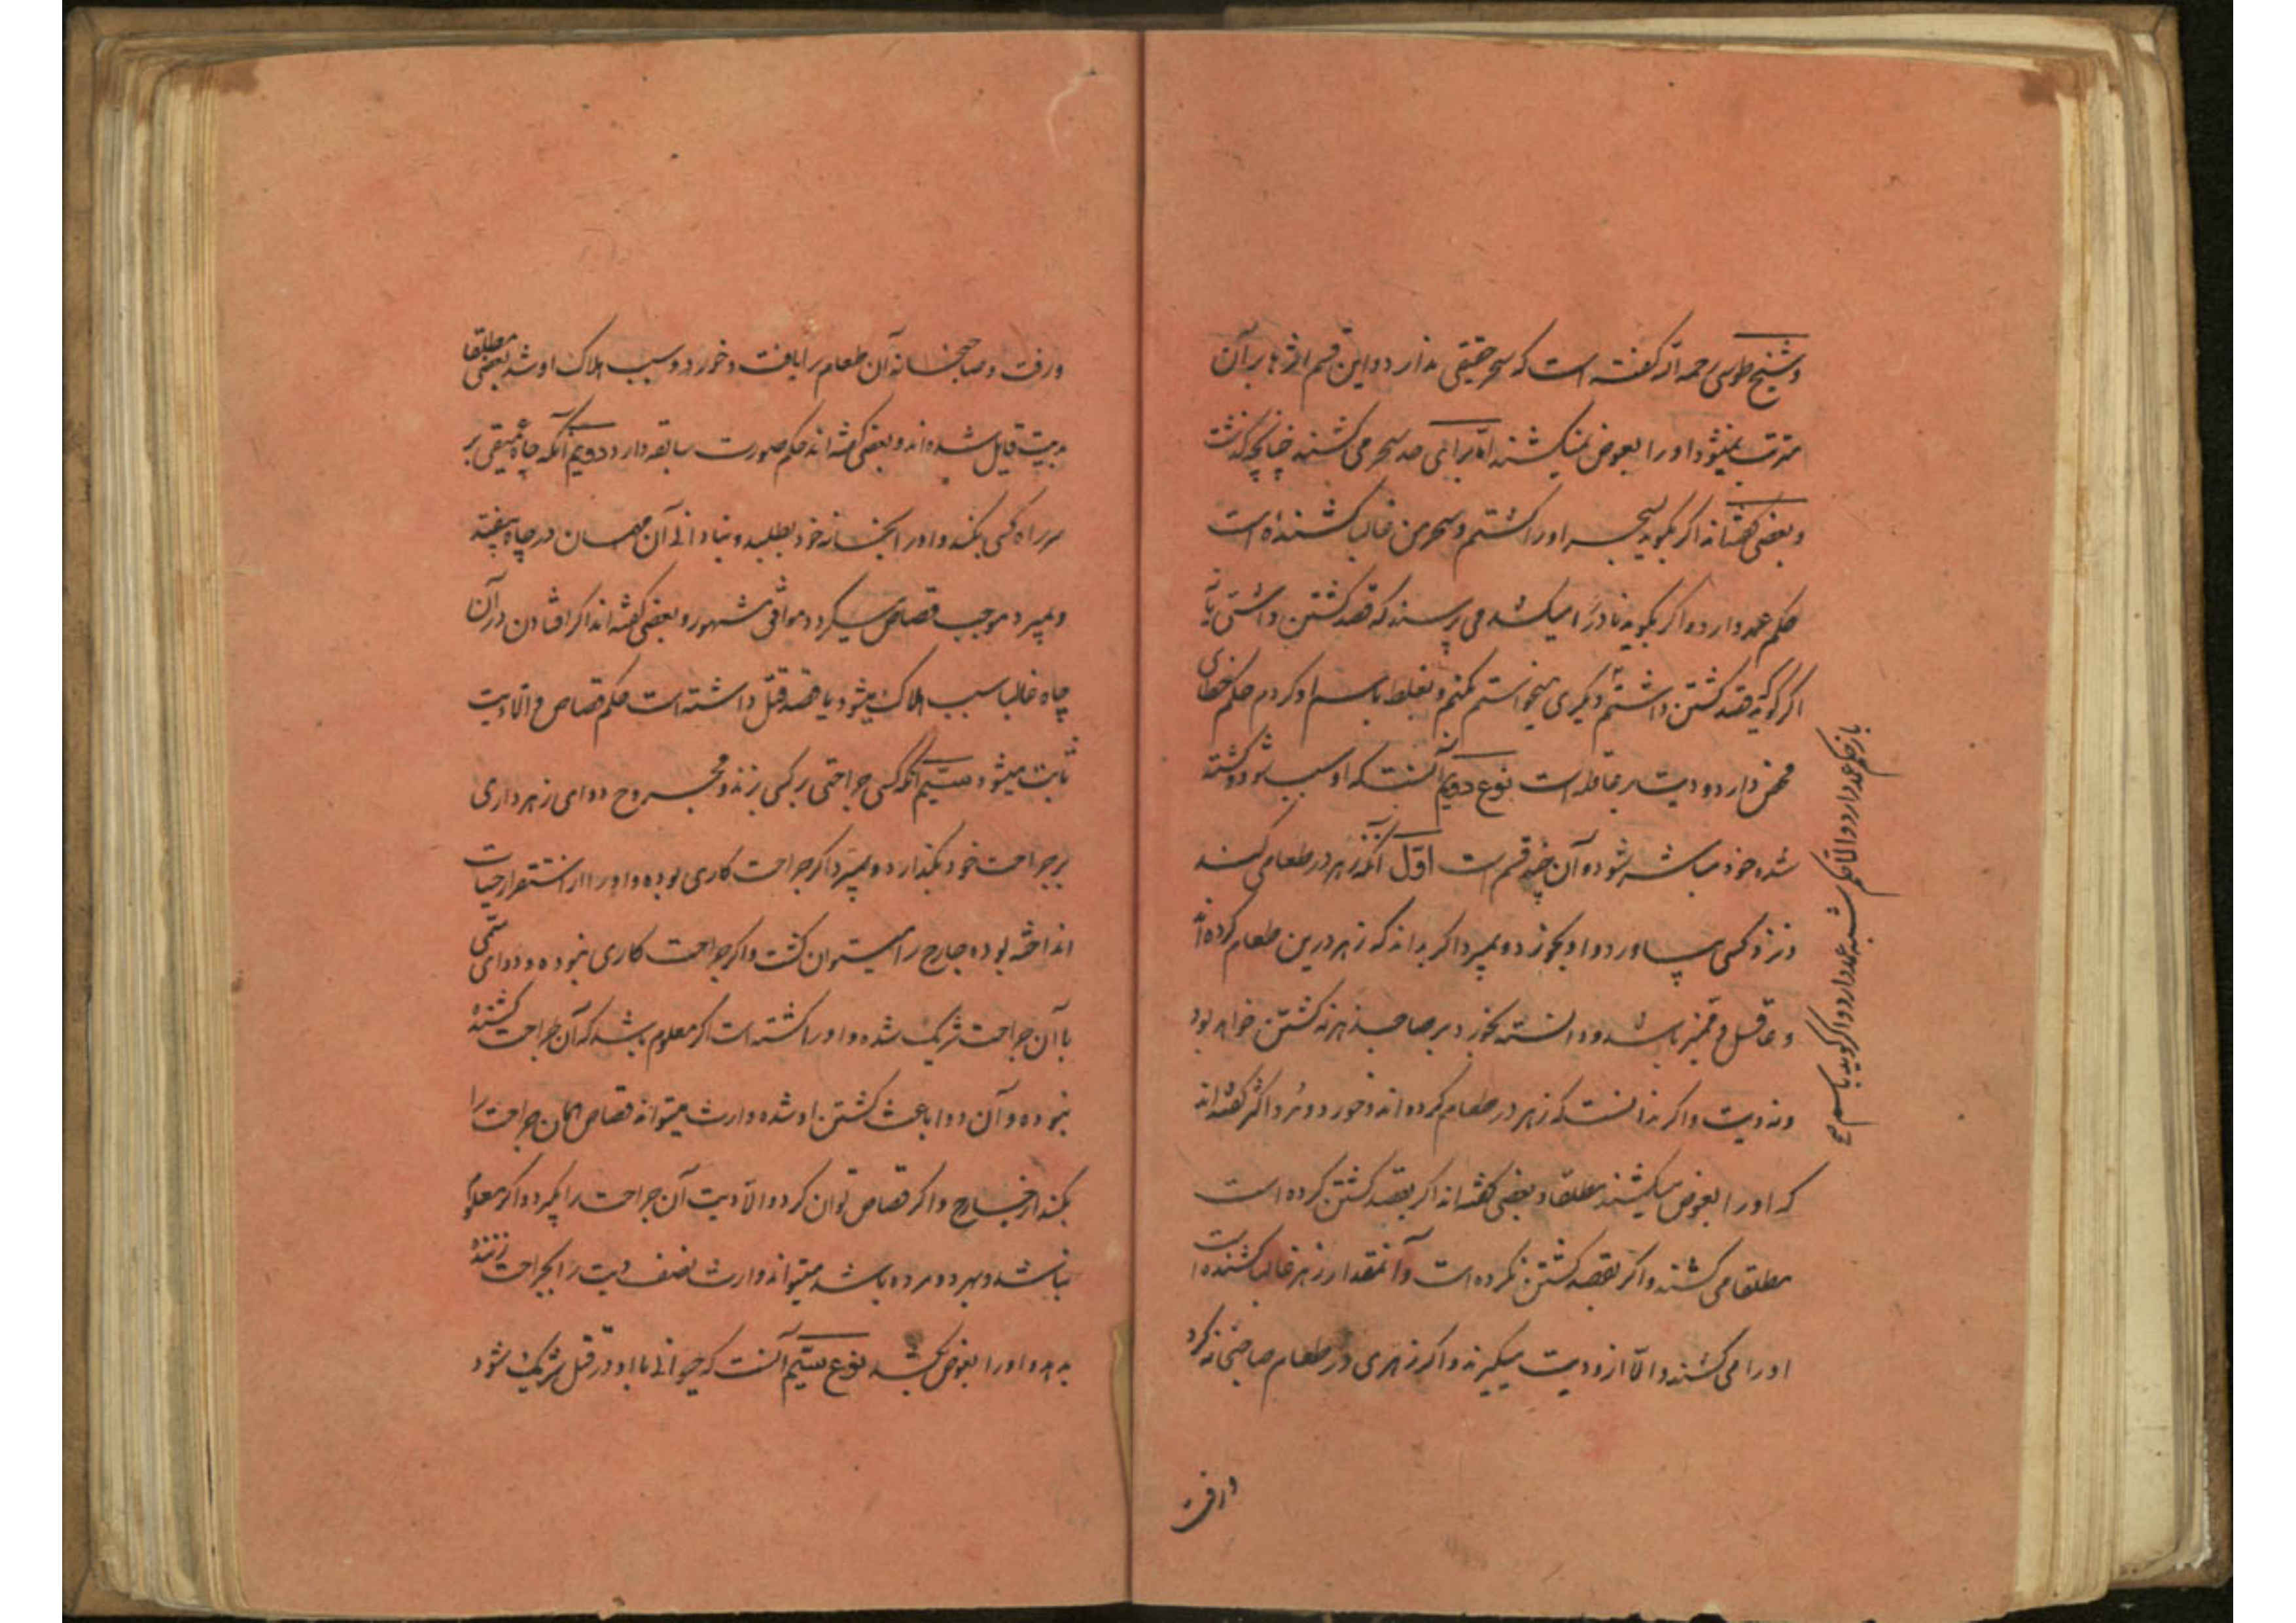 و شیخ طوسی رحمه الله گفته است که سحر حقیقی ندارد و این قسم اثرها بر آن
مترتب نمیشود و او را بعوض نمیکشند اما برای حد سحر می کشند چنانچه گذشت
و بعضی گفته‌اند اگر بگوید بسحر او را کشتم و سحر من غالبا کشنده است
حکم عمد دارد و اگر بگوید نادرا میکشد می پرسند که قصد کشتن داشتی یا نه
اگر گوید قصد کشتن داشتم دیگری میخواستم بکنم و بغلط باسم او کردم حکم خطای
محض دارد و دیت بر عاقله است نوع دویم آنست که او سبب شود و کشته
شده خود مباشر شود و آن چند قسم است اول آنکه زهر در طعامی کند
و نزد کسی بیاورد و او بخورد و بمیرد اگر بداند که زهر درین طعام کرده‌اند
و عاقل و ممیز باشد و دانسته بخورد بر صاحب زهر نه کشتن خواهد بود
و نه دیت و اگر ندانست که زهر در طعام کرده‌اند و خورد و مرد اکثر گفته‌اند
که او را بعوض میکشند مطلقا و بعضی گفته‌اند اگر بقصد کشتن کرده است
مطلقا می کشند و اگر بقصد کشتن نکرده است و آنمقدار زهر غالبا کشنده است
او را می کشند و الا ازو دیت میگیرند و اگر زهری در طعام صاحبخانه کرد
و رفت
یا نه اگر گوید حکم عمد دارد و الا حکم شبه عمد دارد و اگر گوید باسم
و رفت و صاحبخانه آن طعام را یافت و خورد و سبب هلاک او شد بعضی مطلقا
بدیت قایل شده‌اند و بعضی گفته‌اند حکم صورت سابقه دارد دویم آنکه چاه عمیقی بر
سر راه کسی بکند و او را بخانه خود بطلبد و بنادانی آن مهمان در چاه بیفتد
و بمیرد موجب قصاص میگردد موافق مشهور و بعضی گفته‌اند اگر افتادن در آن
چاه غالبا سبب هلاک میشود یا قصد قتل داشته است حکم قصاص و الا دیت
ثابت میشود سیم آنکه کسی جراحتی بر کسی بزند و مجروح دوای زهرداری
بر جراحت خود بگذارد و بمیرد اگر جراحت کاری بوده و او را از استقرار حیات
انداخته بوده جارح را میتوان کشت و اگر جراحت کاری نبوده و دوای سمی
با آن جراحت شریک شده و او را کشته است اگر معلوم باشد که آن جراحت کشنده
نبوده و آن دوا باعث کشتن او شده وارث میتواند قصاص همان جراحت را
بکند از جارح و اگر قصاص توان کرد و الا دیت آن جراحت را بگیرد و اگر معلوم
نباشد و بهر دو مرده باشد میتواند وارث نصف دیت را بجراحت زننده
بدهد و او را بعوض بکشد نوع سیم آنست که حیوانی با او در قتل شریک شود